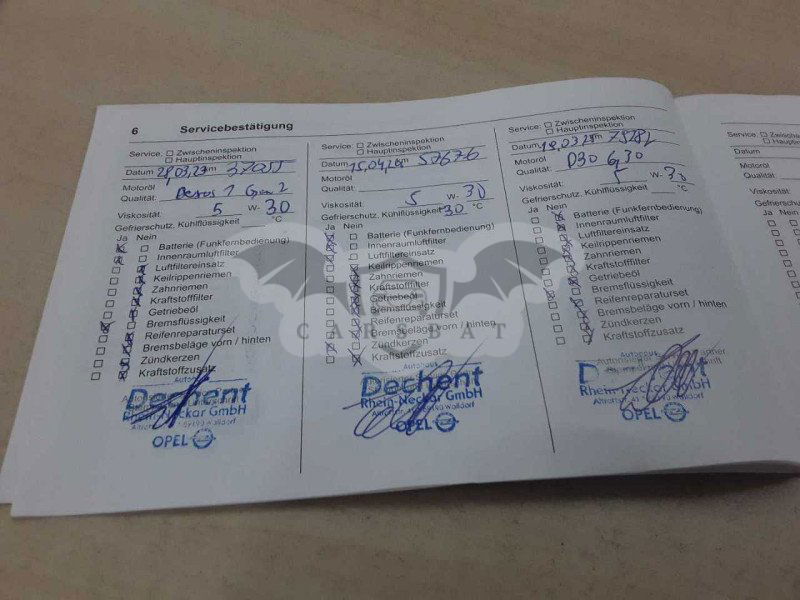 6 Servicebestätigung
Service: Zwischeninspektion
Hauptinspektion
Datum
Motoröl
Qualität:
Viskosität: 5 W- 30
Gefrierschutz, Kühlflüssigkeit °C
Ja Nein
Batterie (Funkfernbedienung)
Innenraumluftfilter
Luftfiltereinsatz
Keilrippenriemen
Zahnriemen
Kraftstofffilter
Getriebeöl
Bremsflüssigkeit
Reifenreparaturset
Bremsbeläge vorn / hinten
Zündkerzen
Kraftstoffzusatz
Dechent
Rhein-Neckar GmbH
69190 Walldorf
OPEL
Service: Zwischeninspektion
Hauptinspektion
Datum 57676
Motoröl
Qualität:
Viskosität: 5 W- 30
Gefrierschutz, Kühlflüssigkeit 30 °C
Ja Nein
Batterie (Funkfernbedienung)
Innenraumluftfilter
Luftfiltereinsatz
Keilrippenriemen
Zahnriemen
Kraftstofffilter
Getriebeöl
Bremsflüssigkeit
Reifenreparaturset
Bremsbeläge vorn / hinten
Zündkerzen
Kraftstoffzusatz
Autohaus
Dechent
Rhein-Neckar GmbH
69190 Walldorf
OPEL
Service: Zwischeninspektion
Hauptinspektion
Datum
Motoröl
Qualität:
Viskosität: 5 W- 30
Gefrierschutz, Kühlflüssigkeit °C
Ja Nein
Batterie (Funkfernbedienung)
Innenraumluftfilter
Luftfiltereinsatz
Keilrippenriemen
Zahnriemen
Kraftstofffilter
Getriebeöl
Bremsflüssigkeit
Reifenreparaturset
Bremsbeläge vorn / hinten
Zündkerzen
Kraftstoffzusatz
Autohaus
Rhein-Neckar GmbH
Walldorf
OPEL
Service:
Datum
Motoröl
Qualität:
Viskosität:
Gefrierschutz
Ja Nein
CARSBAT